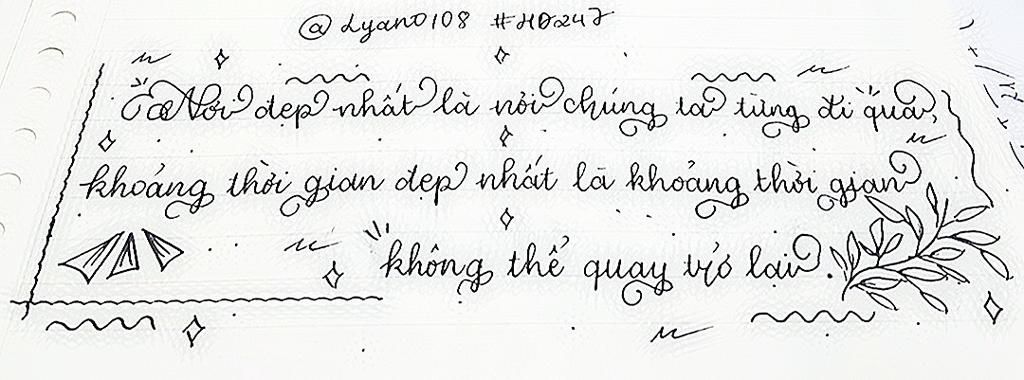 @Lyano108 #HD247
Nơi đẹp nhất là nơi chúng ta từng đi qua,
khoảng thời gian đẹp nhất là khoảng thời gian
không thể quay trở lại.